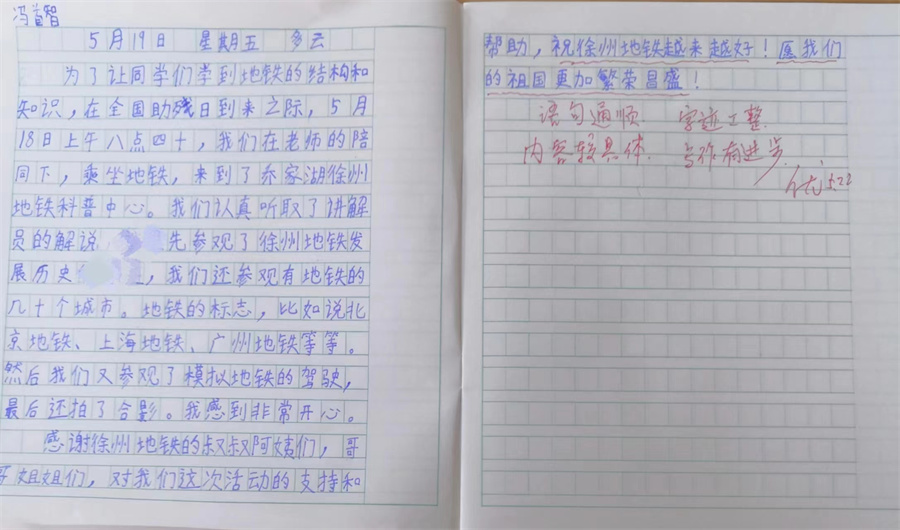 冯首智
5月19日 星期五 多云
为了让同学们学到地铁的结构和
知识，在全国助残日到来之际，5月
18日上午八点四十，我们在老师的陪
同下，乘坐地铁，来到了乔家湖徐州
地铁科普中心。我们认真听取了讲解
员的解说 先参观了徐州地铁发
展历史 ，我们还参观有地铁的
几十个城市。地铁的标志，比如说北
京地铁、上海地铁、广州地铁等等。
然后我们又参观了模拟地铁的驾驶，
最后还拍了合影。我感到非常开心。
感谢徐州地铁的叔叔阿姨们，哥
哥姐姐们，对我们这次活动的支持和
帮助，祝徐州地铁越来越好！愿我们
的祖国更加繁荣昌盛！
语句通顺 字迹工整
内容较具体 写作有进步
优 5.22